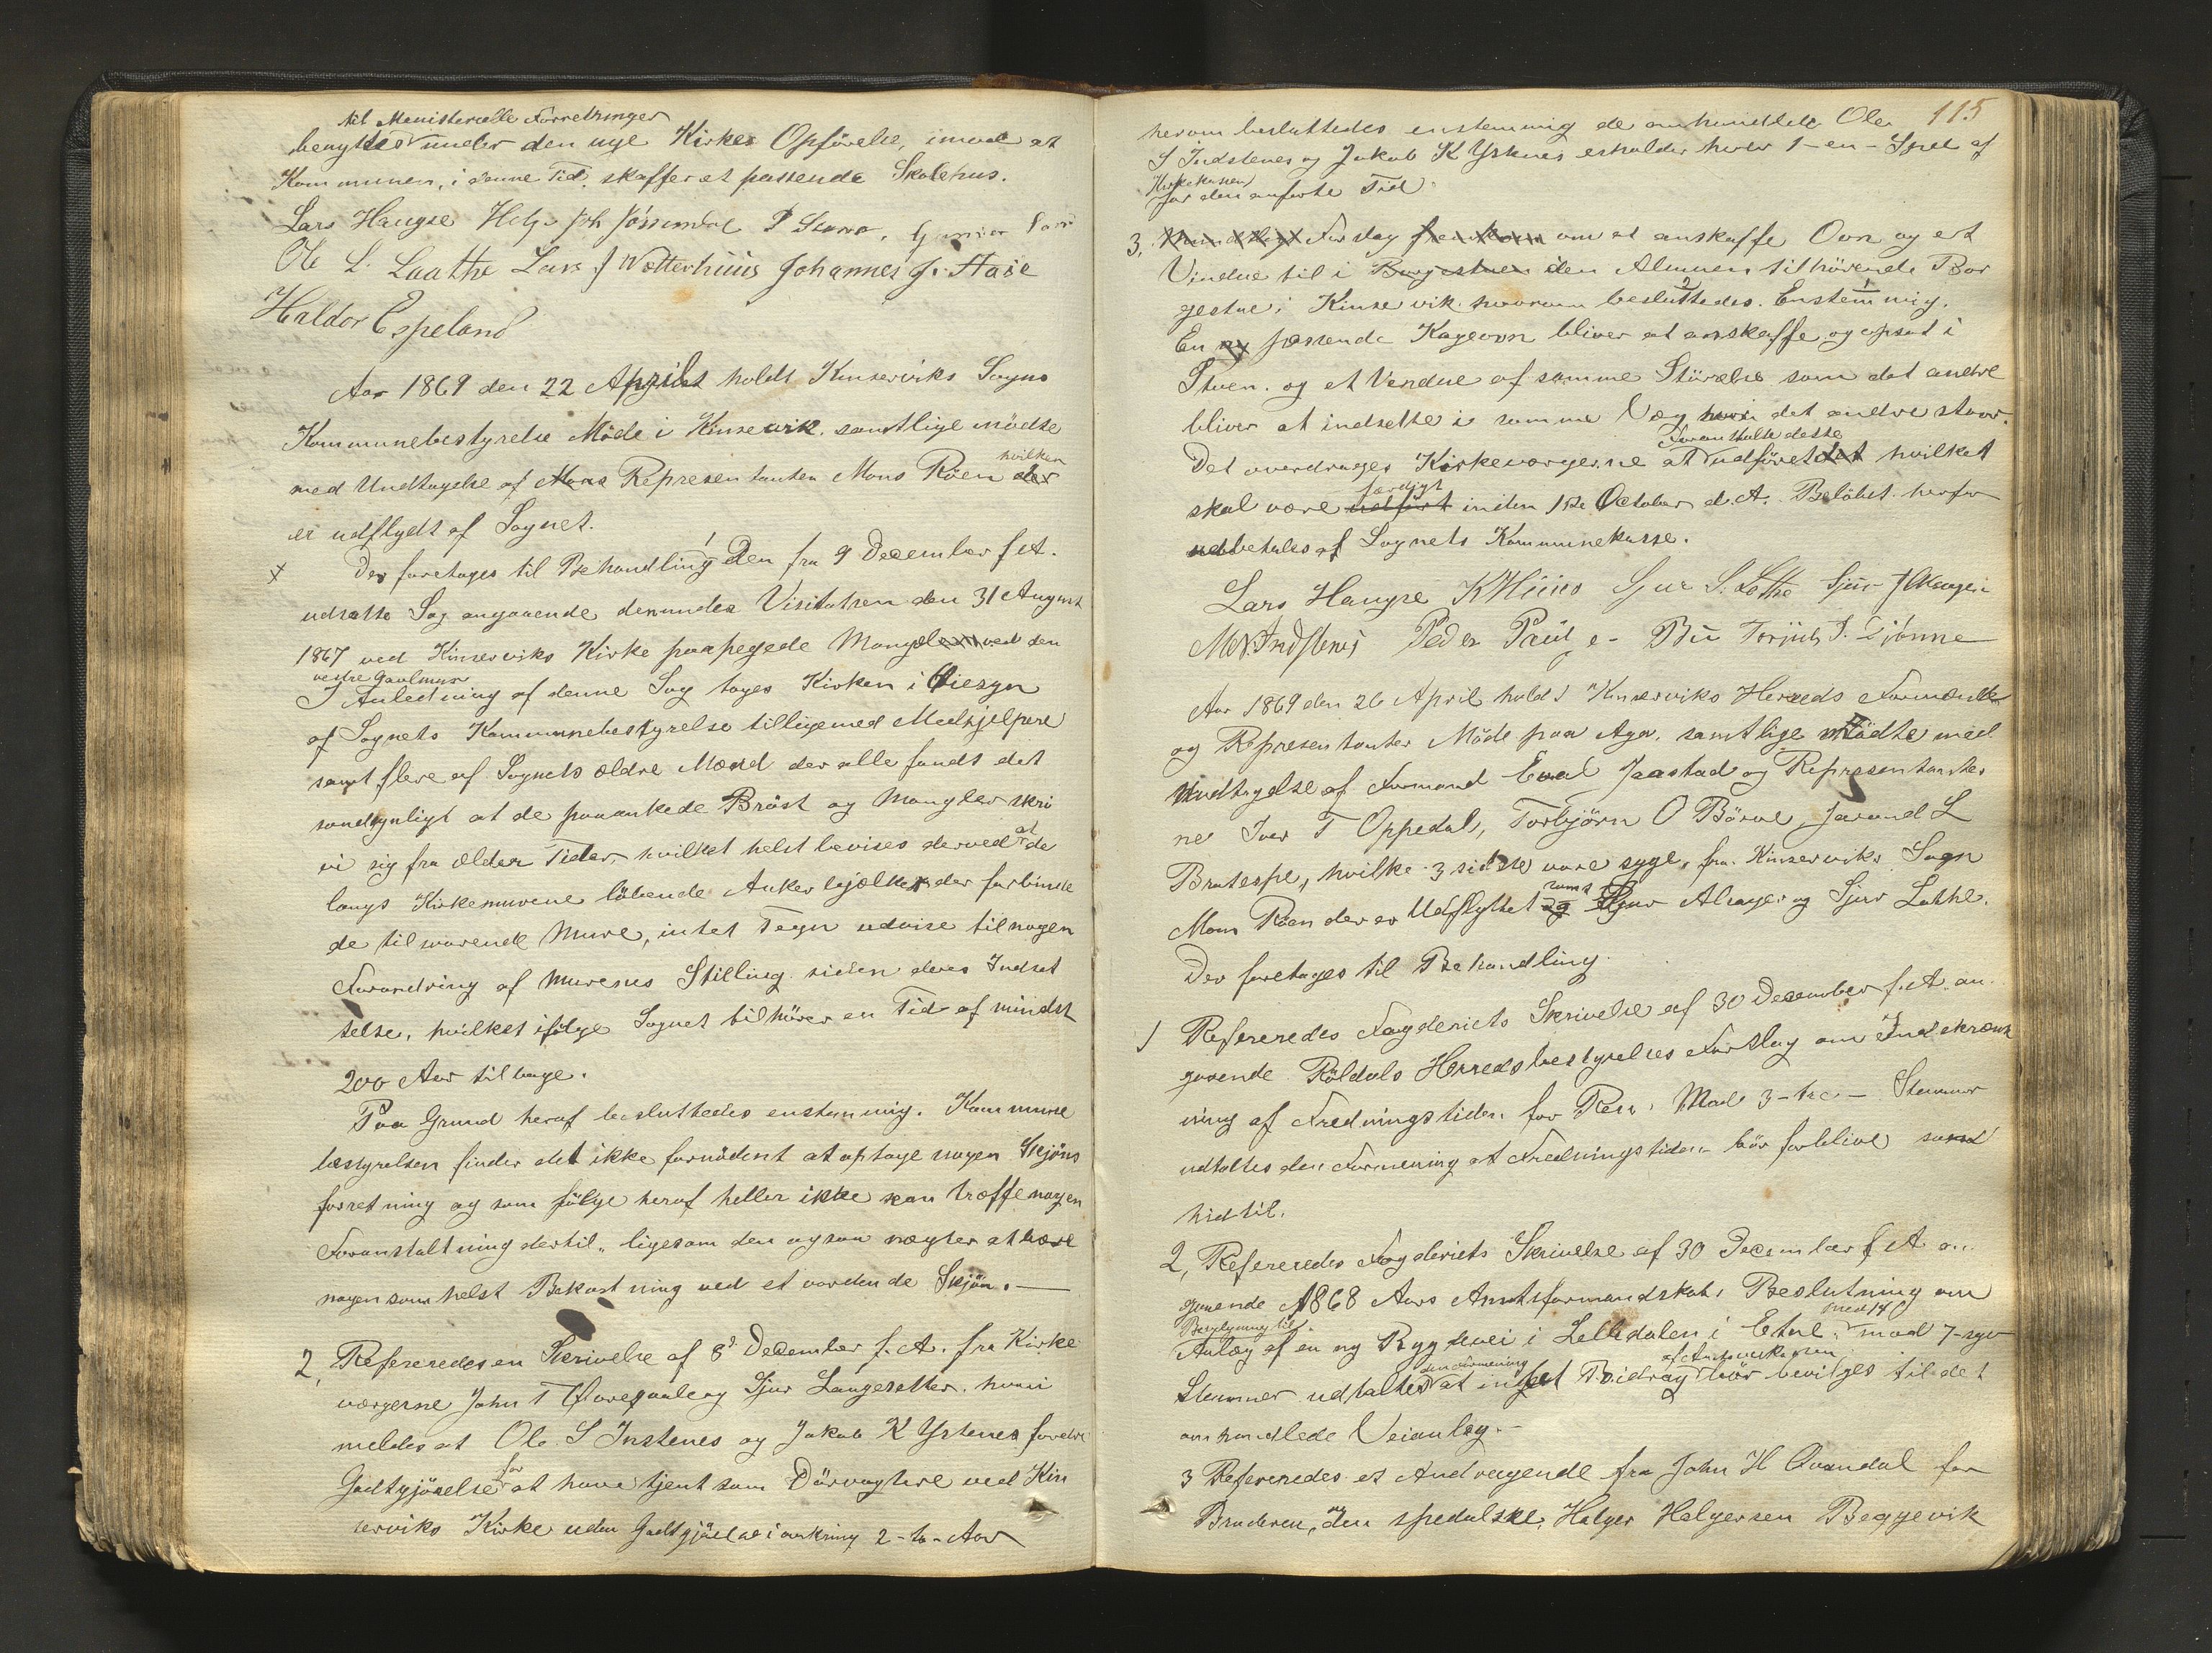 til Ministerielle Forretninger
benyttes under den nye Kirkes Opförelse, imod at
Kommunen, i denne Tid, skaffer et passende Skolehus.
Lars Haugse Helje Joh Jössendal P
Ole L. Laathe Lars J Wetterhuus Johannes J. Hase
Haldor Espeland
Aar 1869 den 22 April holdt Kinserviks Sogns
Kommunebestyrelse Möde i Kinservik. samtlige mödte
hvilken
med Undtagelse af Mons Representanten Mons Röen der
er udflydt af Sognet.
Der foretoges til Behandling 1 Den fra 9 December f. A.
udsatte Sag angaaende den under Visitatsen den 31 August
1867 ved Kinserviks Kirke paapegede Mangel ved den
vestre Gavlmur
I Anledning af denne Sag toges Kirken i Öiesyn
af Sognets Kommunebestyrelse tilligemed Medhjelpere
samt flere af Sognets ældre Mænd der alle fandt det
sandsynligt at de paaankede Bröst og Mangler skri
ver sig fra ælder Tider, hvilket helst bevises derved at de
langs Kirkemurene löbende Ankerbjælker der forbinde
de tilsvarende Mure, intet Tegn udvise til nogen
Forandring af Murenes Stilling siden deres Indsæt
telse, hvilket ifölge Sagnet tilhörer en Tid af mindst
200 Aar tilbage.
Paa Grund heraf besluttedes enstemmig. Kommune
bestyrelsen finder det ikke fornödent at optage nogen Skjöns
forretning og som fölge heraf heller ikke kan træffe nogen
Foranstaltning dertil, ligesom den ogsaa nægter at bære
nogensomhelst Bekostning ved et vordende Skjön.—
2, Refereredes en Skrivelse af 8de December f. A. fra Kirke
værgerne John T Huregaale og Sjur Langesetter. hvori
meldes at Ole S Instenes og Jakob K Ystenes fordre
Godtgjörelse for at have tjent som Dörvogtere ved Kin
serviks Kirke uden Godtgjörelse i omkring 2-to-Aar
115
herom besluttedes enstemmig de omhandlede Ole
S Indstenes og Jakob K Ystenes erholder hver 1-en-Spd af
Kirkekassen
for den anförte Tid.
3, Forslag om at anskaffe Ovn og et
Vindue til i Borgestuen den Almuen tilhörende Bor
gestue i Kinservik. hvorom besluttedes 2 Enstemmig. 1
En ny passende Kageovn bliver at anskaffe og opsat i
Stuen. og et Vendue af samme Störelse som det andre
bliver at indsette i samme Væg hvori det andre staar.
Foranstalte dette
Det overdrages Kirkeværgerne at udföret det hvilket
færdigt
skal være udfört inden 1ste October d. A. Belöbet herfor
udbetales af Sognets Kommunekasse.
Lars Haugse K Huus Sjur S. Lothe Sjur J Alsager
M N. Indstenes Peder Paul e- Bu Torjuls T. Djönne
Aar 1869 den 26 April holdt Kinserviks Herreds Formænd
og Representanter Möde paa Aga. samtlige mödte med
Undtagelse af Formand Eval Jaastad og Representanter
ne Iver T Oppedal, Torbjörn O Börve, Jarand L
Bratespe, hvilke 3 sidste vare syge, fra Kinserviks Sogn
samt
Mons Röen der er Udflyttet og Sjur Alsager og Sjur Lothe.
Der foretoges til Behandling.
1 Refereredes Fogderiets Skrivelse af 30 December f. A. an
gaaende Röldals Herredsbestyrelses Forslag om Indskrænk
ning af Fredningstiden for Ren. Mod 3-tre- Stemmer
udtaltes den Formening at Fredningstiden bör forblive som
hidtil.
2, Refereredes Fogderiets Skrivelse af 30 December f A an
gaaende 1868 Aars Amtsformandskabs Beslutning om
Bevilgning til med 14
Anlæg af en ny Bygdevei i Lelledalen i Etne, mod 7-syv
den Formening af Amtsveikassen
Stemmer udtaltes at intet Bidrag bör bevilges til det
omhandlede Veianlæg.-
3 Refereredes et Andragende fra John H Qvandal for
Broderen, den spedalske, Helger Helgersen Beggevik